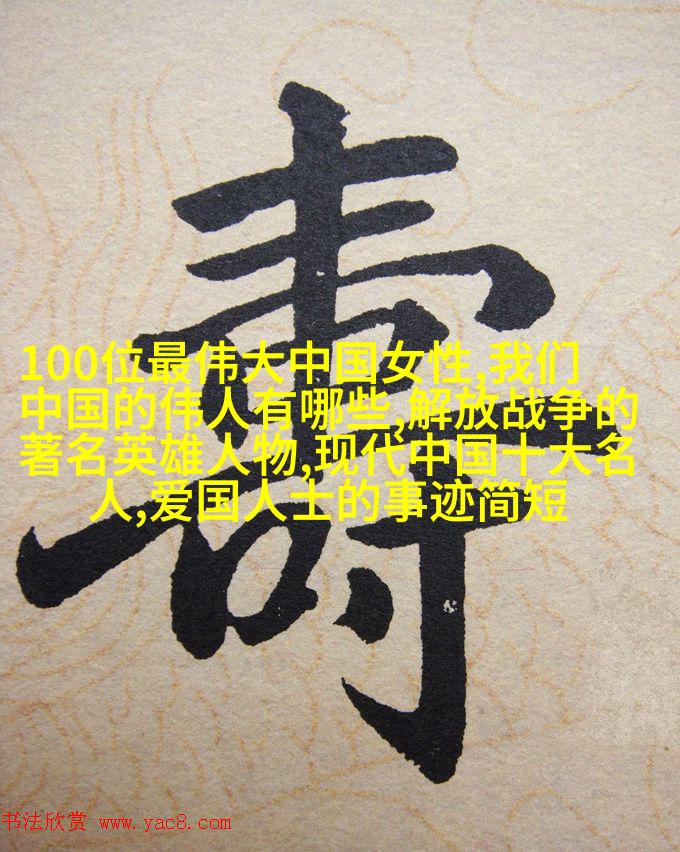 壽
100位最伟大中国女性,我们
中国的伟人有哪些,解放战争的
著名英雄人物,现代中国十大名
人,爱国人士的事迹简短
书法欣赏 www.yac8.com